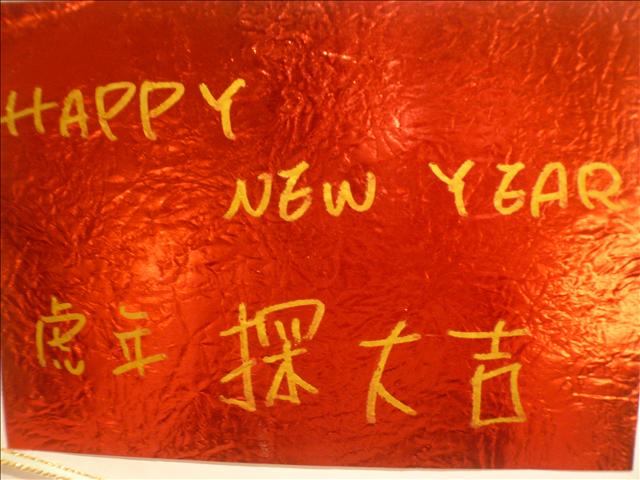 HAPPY
NEW YEAR
虎年 探大吉